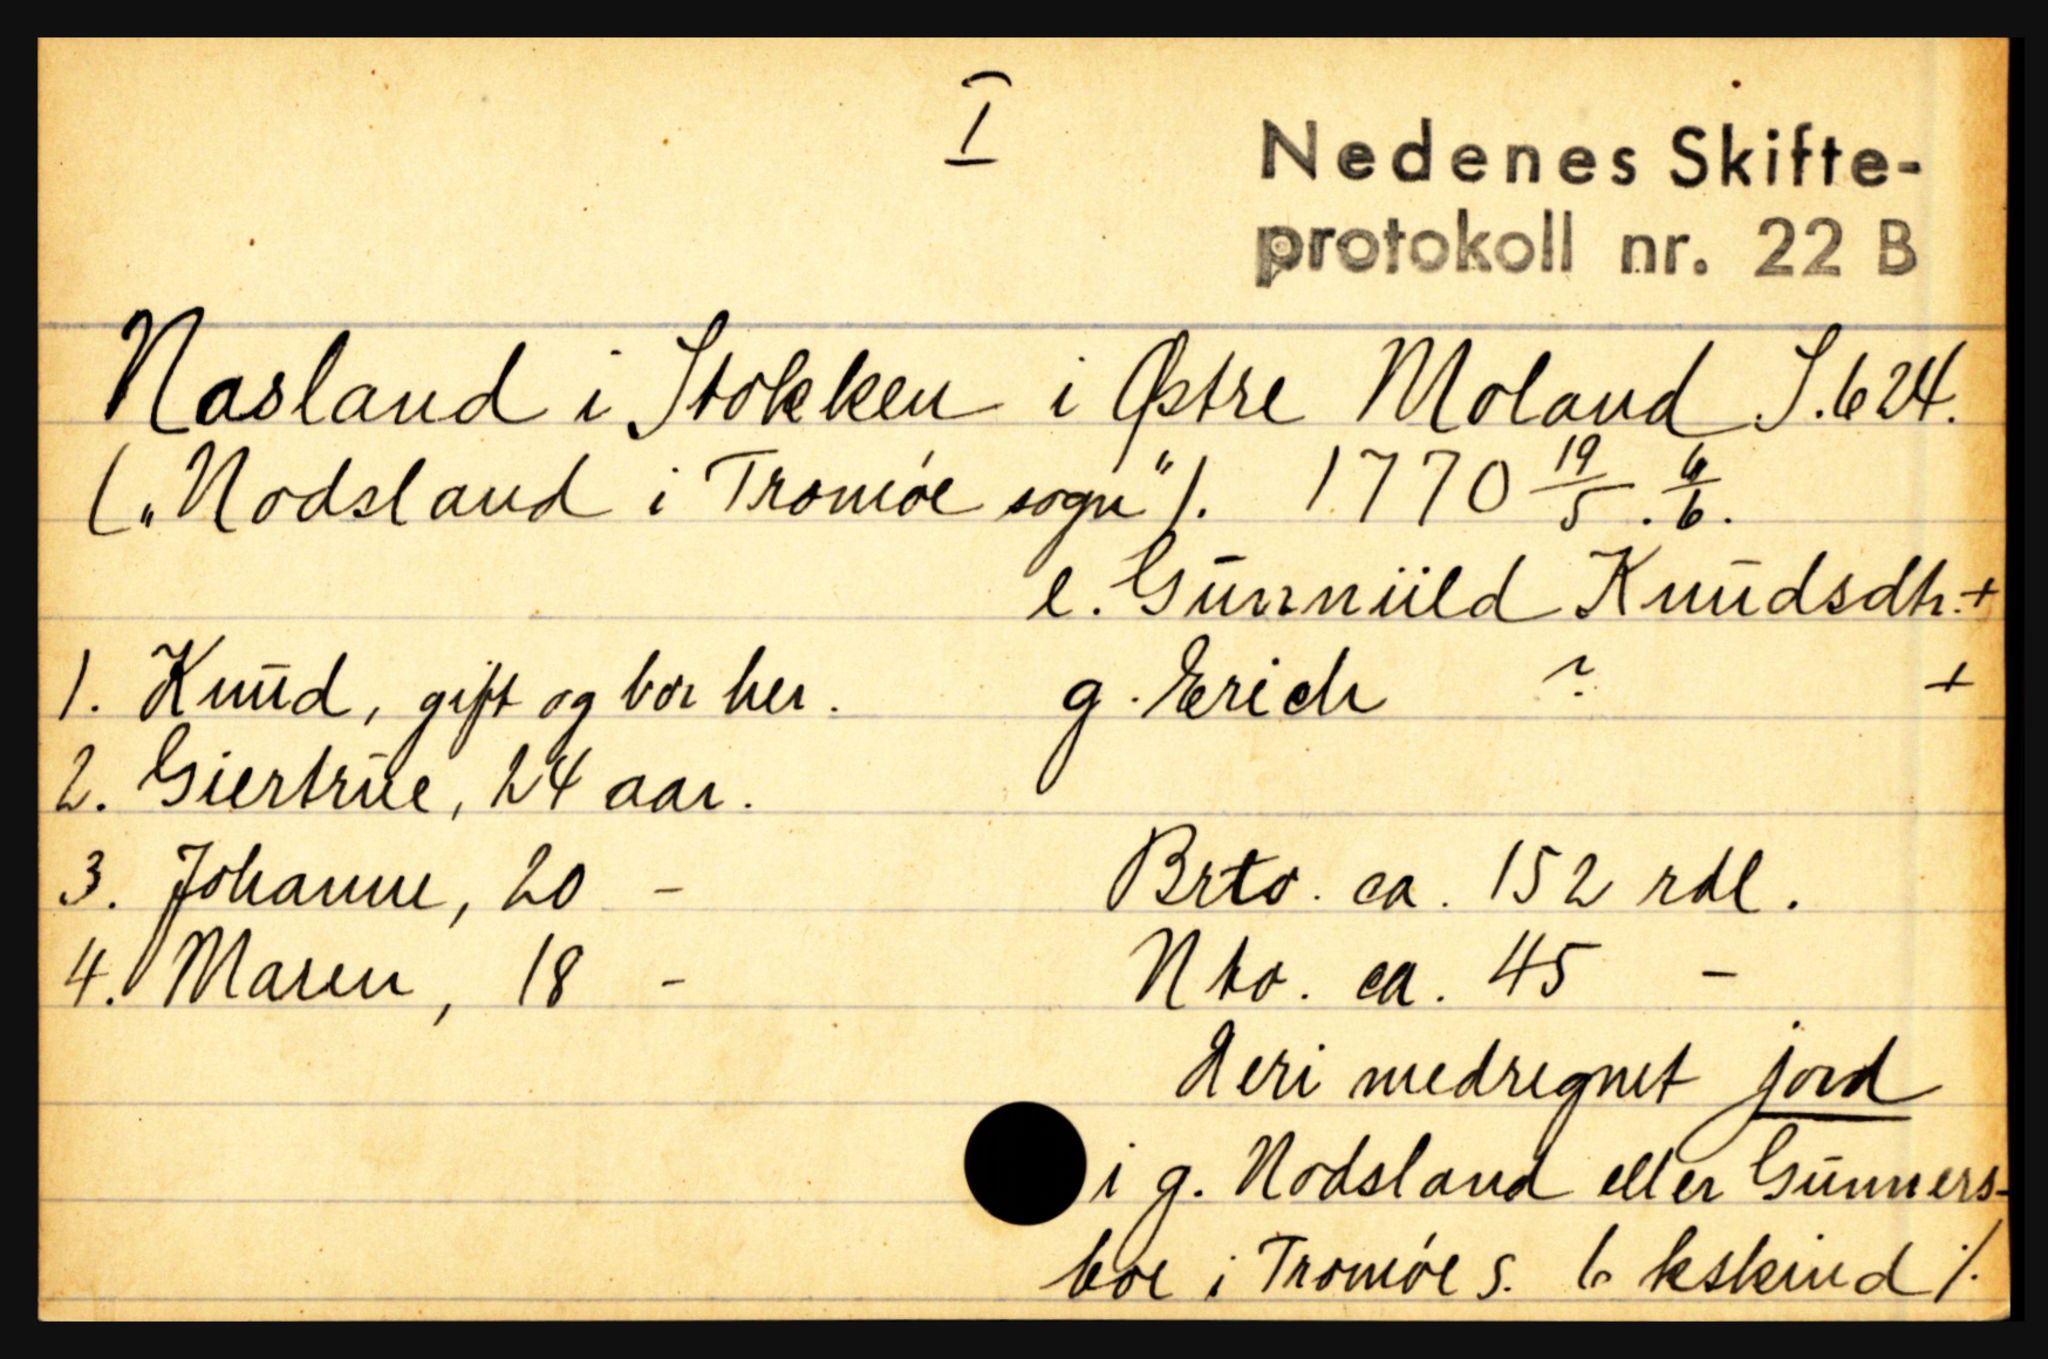 I
Nedenes Skifte-
protokoll nr. 22 B
Nasland i Stokken i Østre Moland S. 624.
(„Nodsland i Tromøe sogn"). 1770 19/5. 6/6.
e. Gŭnniild Knŭdsdtr. +
1. Knŭd, gift og bor her. g. Erich ? +
2. Giertrŭe, 24 aar.
3. Johanne, 20 - Brto. ca. 152 rdl.
4. Maren, 18 - Nto. ca. 45 -
Heri medregnet jord
i g. Nodsland eller Gŭnners-
boe i Tromøe s. 6 kskind ./.